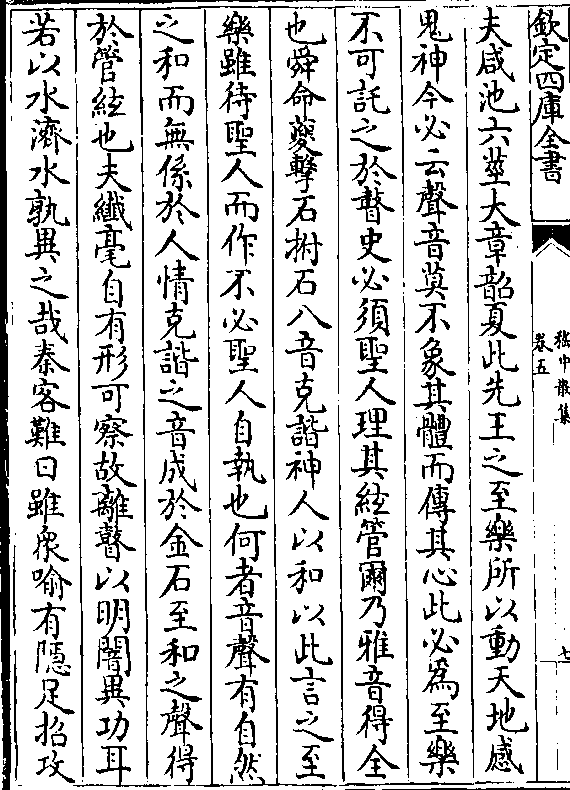 欽定四庫全書
嵇中散集
卷五
七
夫咸池六莖大章韶夏此先王之至樂所以動天地感
鬼神今必云聲音莫不象其體而傳其心此必為至樂
不可託之於瞽史必須聖人理其絃管爾乃雅音得全
也舜命夔擊石拊石八音克諧神人以和以此言之至
樂雖待聖人而作不必聖人自執也何者音聲有自然
之和而無係於人情克諧之音成於金石至和之聲得
於管絃也夫纖毫自有形可察故離瞽以明闇異功耳
若以水濟水孰異之哉秦客難曰雖衆喻有隱足招攻